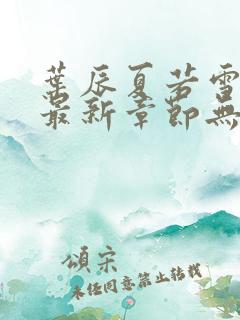 葉辰夏若雪
最新章節無
頌宋
未經同意禁止轉載